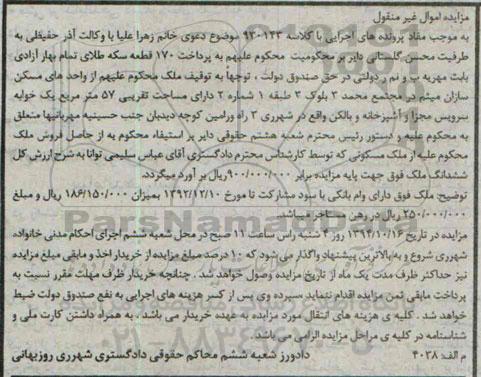 مزایده اموال غیر منقول
به موجب مفاد پرونده های اجرایی با کلاسه ۹۳۰۱۴۳ موضوع دعوی خانم زهرا علیا با وکالت آذر حفیظی به
طرفیت محسن گلستانی دایر بر محکومیت محکوم علیهم به پرداخت ۱۷۰ قطعه سکه طلای تمام بهار آزادی
بابت مهریه ب و نیم ر دولتی در حق صندوق دولت ، توجهاً به توقیف ملک محکوم علیهم از واحد های مسکن
سازان میثم در مجتمع محمد ۳ بلوک ۳ طبقه ۱ شماره ۲ دارای مساحت تقریبی ۵۷ متر مربع یک خوابه
سرویس مجزا و آشپزخانه و بالکن واقع در شهرری ۳ راه ورامین کوچه دیدبان جنب حسینیه مهربانیها متعلق
به محکوم علیه و دستور رئیس محترم شعبه هشتم حقوقی دایر بر استیفاء محکوم به از حاصل فروش ملک
محکوم علیه از ملک مسکونی که توسط کارشناس محترم دادگستری آقای عباس سلیمی توانا به شرح ارزش کل
ششدانگ ملک فوق جهت پایه مزایده برابر ۹۰۰/۰۰۰/۰۰۰ ریال بر آورد میگردد.
توضیح: ملک فوق دارای وام بانکی با سود مشارکت تا مورخ ۱۳۹۲/۱۲/۱۰ بمیزان ۱۸۶/۱۵۰/۰۰۰ ریال و مبلغ
۲۵۰/۰۰۰/۰۰۰ ریال در رهن مستاجر میباشد.
مزایده در تاریخ ۱۳۹۴/۱۰/۱۶ روز ۴ شنبه راس ساعت ۱۱ صبح در محل شعبه ششم اجرای احکام مدنی خانواده
شهرری شروع و به بالاترین پیشنهاد واگذار می شود که ۱۰ درصد مبلغ مزایده از خریدار اخذ و مابقی مبلغ مزایده
نیز حداکثر ظرف مدت یک ماه از تاریخ مزایده وصول خواهد شد . چنانچه خریدار ظرف مهلت مقرر نسبت به
پرداخت مابقی ثمن مزایده اقدام ننماید سپرده وی پس از کسر هزینه های اجرایی به نفع صندوق دولت ضبط
خواهد شد . کلیه ی هزینه های انتقال مورد مزایده به عهده خریدار می باشد. به همراه داشتن کارت ملی و
شناسنامه در کلیه ی مراحل مزایده الزامی می باشد.
م الف: ۴۰۳۸ دادورز شعبه ششم محاکم حقوقی دادگستری شهرری روزبهانی
ParsNamadData
۰۲۱-۸۸۳۴۹۶۷۰